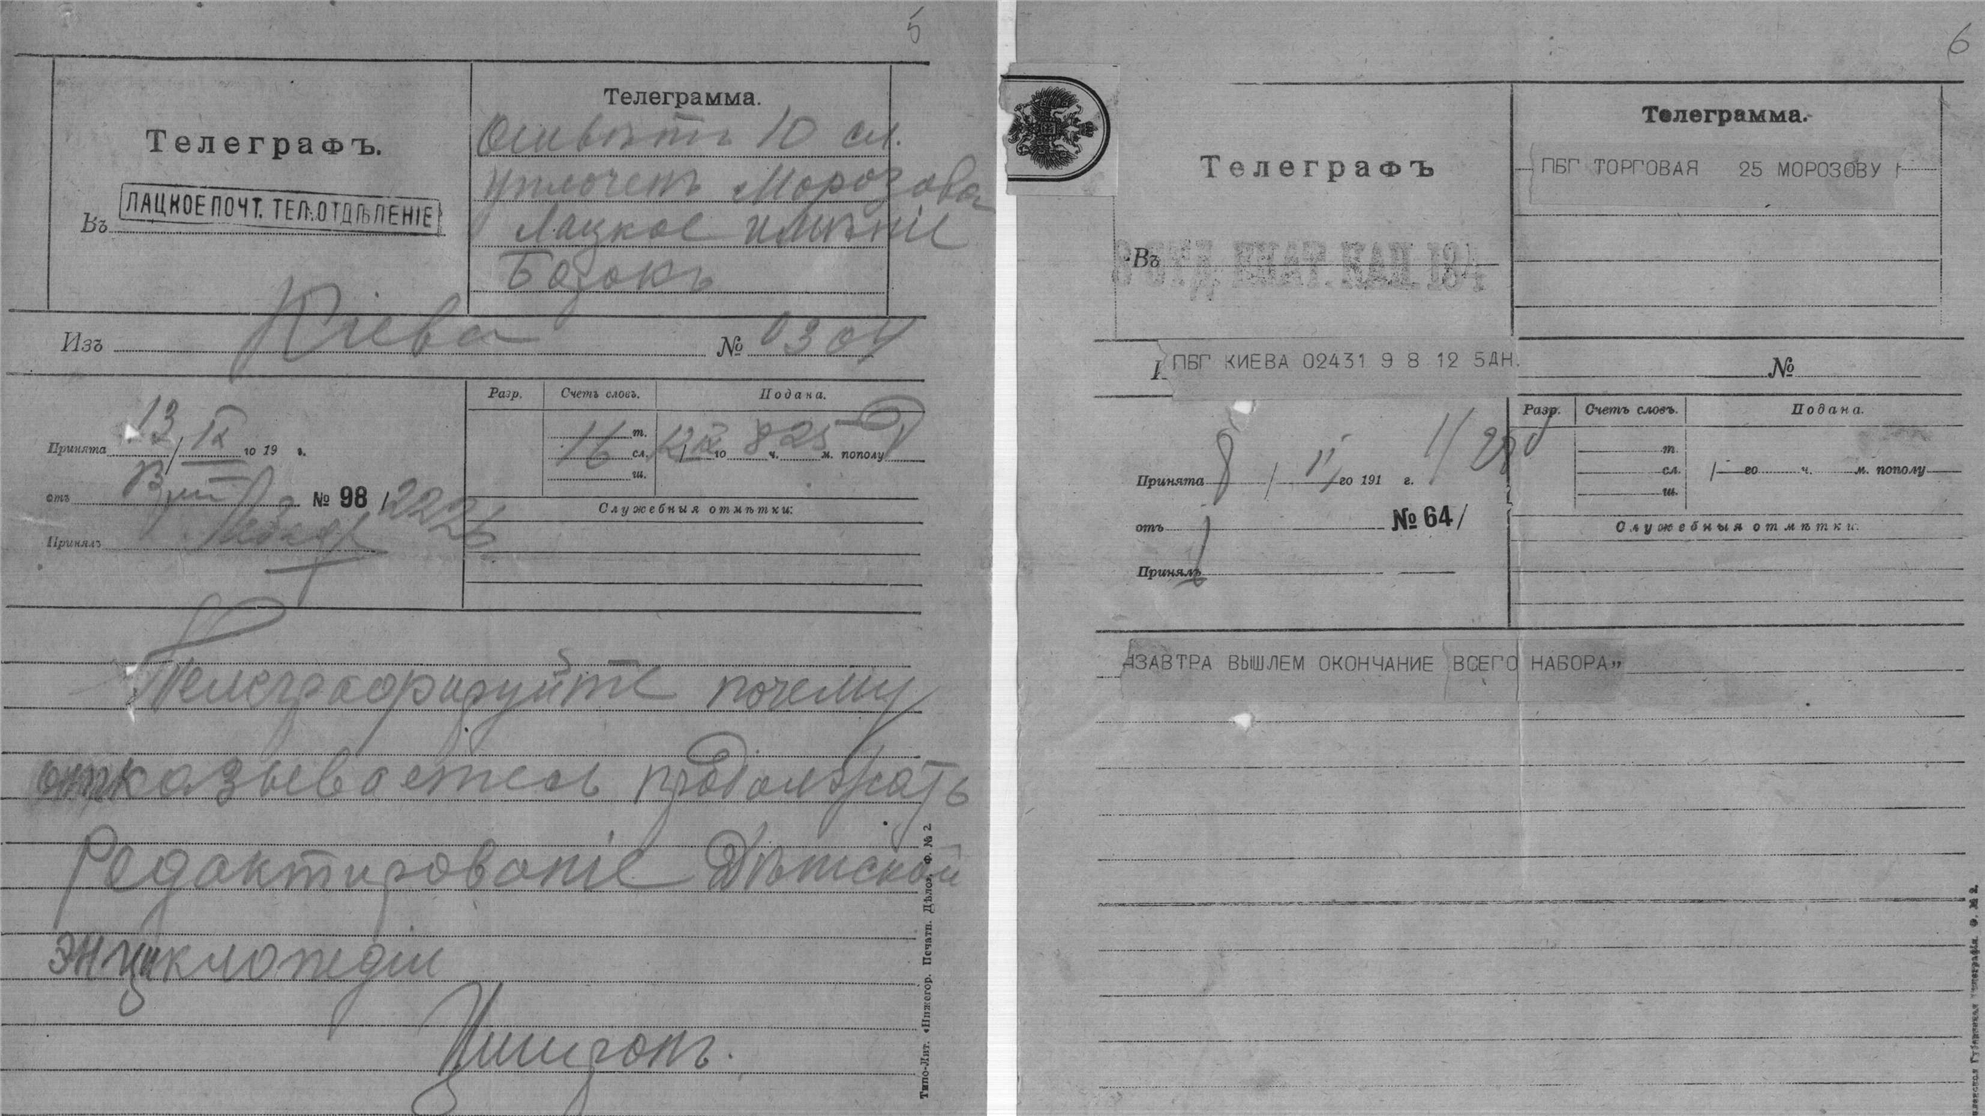 5
Телеграфъ.
Въ ЛАЦКОЕ ПОЧТ. ТЕЛ. ОТДѢЛЕНІЕ
Телеграмма.
10 сл.
уплоченъ Морозова
Лацкое имѣніе
Борокъ
Изъ Кіева № 0304
Принята 13/IX го 19 г.
отъ № 98 /
Принялъ
Разр. Счетъ словъ. Подана.
т.
16 сл. 12 IX го 8 ч. 25 м. пополу
ш.
Служебныя отмѣтки:
Телеграфируйте почему
отказываетесь продолжать
Редактированіе Дѣтской
энциклопедіи
Типо-Лит. «Нижегор. Печатн. Дѣло». Ф. № 2.
6
Телеграфъ
Въ
8 ОТД. 184
Телеграмма.
ПБГ ТОРГОВАЯ 25 МОРОЗОВУ
ПБГ КИЕВА 02431 9 8 12 5ДН.
№
Принята 8 / го 191 г.
отъ № 64/
Принялъ
Разр. Счетъ словъ. Подана.
т.
сл. го ч. м. пополу
ш.
Служебныя отмѣтки:
ЗАВТРА ВЫШЛЕМ ОКОНЧАНИЕ ВСЕГО НАБОРА
Губернская Ф. № 2.